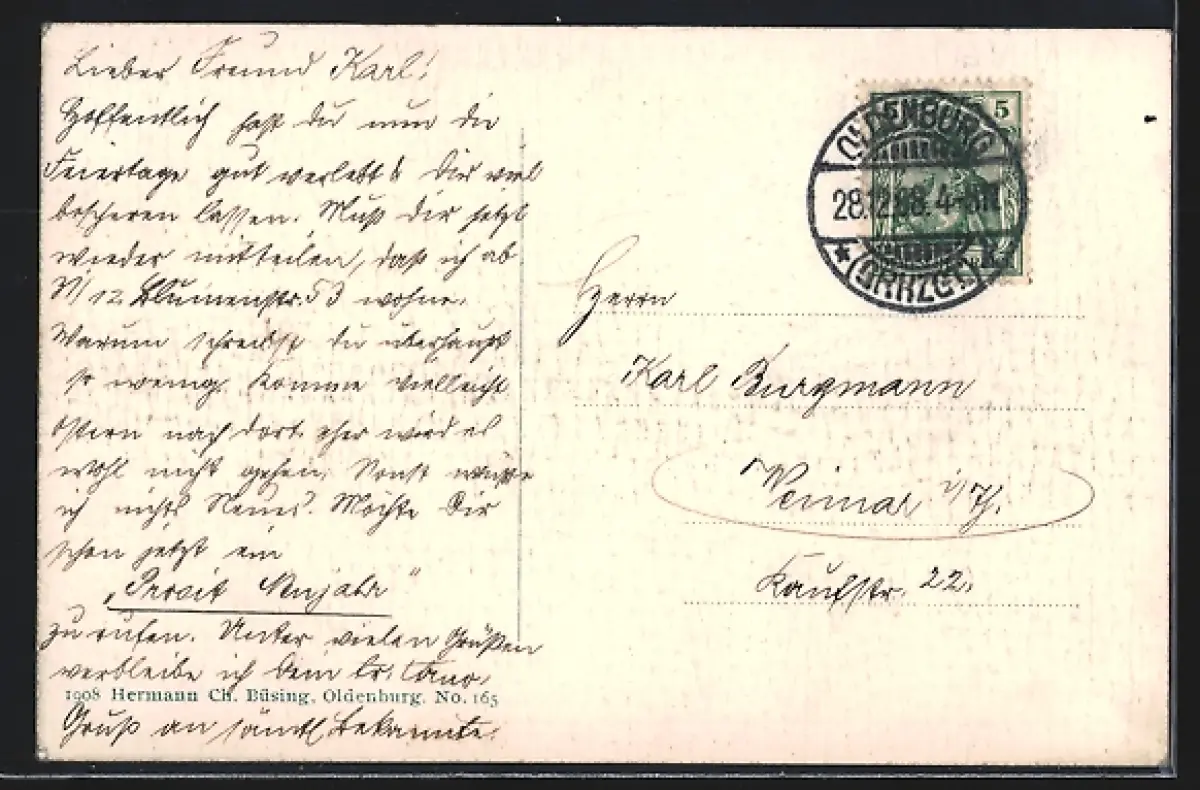 Lieber Freund Karl!
Hoffentlich hast du nun die
Feiertage gut verlebt & Dir viel
bescheren lassen. Muß dir jetzt
wieder mitteilen, daß ich ab
12. Blumenstr. 53 wohne.
Warum schreibst du überhaupt
so wenig. Komme vielleicht
Ostern nach dort. eher wird es
wohl nicht gehen. Sonst wüßte
ich nichts Neues. Möchte Dir
schon jetzt ein
„Prosit Neujahr"
zu rufen. Unter vielen Grüßen
verbleibe ich Dein
1908 Hermann Ch. Büsing, Oldenburg. No. 165
Gruß an sämtl Bekannte.
5
OLDENBURG
28.12.08. 4-5N.
* (GRHZGT.)
Herrn
Karl Burgmann
Weimar i/Th.
Kaufstr. 22.